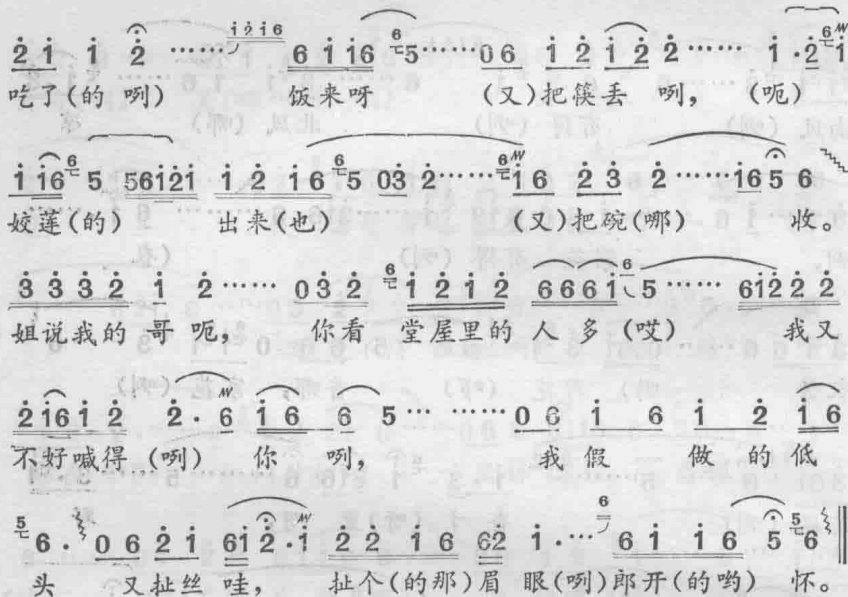 2̇ 1̇ 1̇ 2̇ …… 1̇2̇1̇6 6 1̇ 1̇6 6 5…… 0 6 1̇ 2̇ 1̇ 2̇ 2̇ …… 1̇ · 2̇ 6 1̇
吃了(的 咧) 饭来呀 (又)把筷丢 咧, (呃)
1̇ 1̇6 6 5 561̇2̇1̇ 1̇ 2̇ 1̇6 6 5 03̇ 2̇…… 6 1̇ 6 2̇ 3̇ 2̇……1̇6 5 6
姣莲(的) 出来(也) (又)把碗(哪) 收。
3̇ 3̇ 3̇ 2̇ 1̇ 2̇…… 0 3̇ 2̇ 6 1̇ 2̇ 1̇ 2̇ 6 6 6 1̇ 6 5…… 61̇2̇ 2̇ 2̇
姐说我的 哥 呃, 你看 堂屋里的 人 多 (哎) 我又
2̇ 1̇6 1̇ 2̇ 2̇ · 6 1̇ 6 6 5… ……0 6 1̇ 6 1̇ 2̇ 1̇ 6
不好喊得 (咧) 你 咧, 我 假 做 的 低
5 6 · 0 6 2̇ 1̇ 61̇ 2̇ · 1̇ 2̇ 2̇ 1̇ 6 62̇ 1̇ ·… 6 6 1̇ 1̇ 6 5 5 6
头 又扯丝 哇, 扯个(的那)眉 眼(咧)郎开(的哟) 怀。